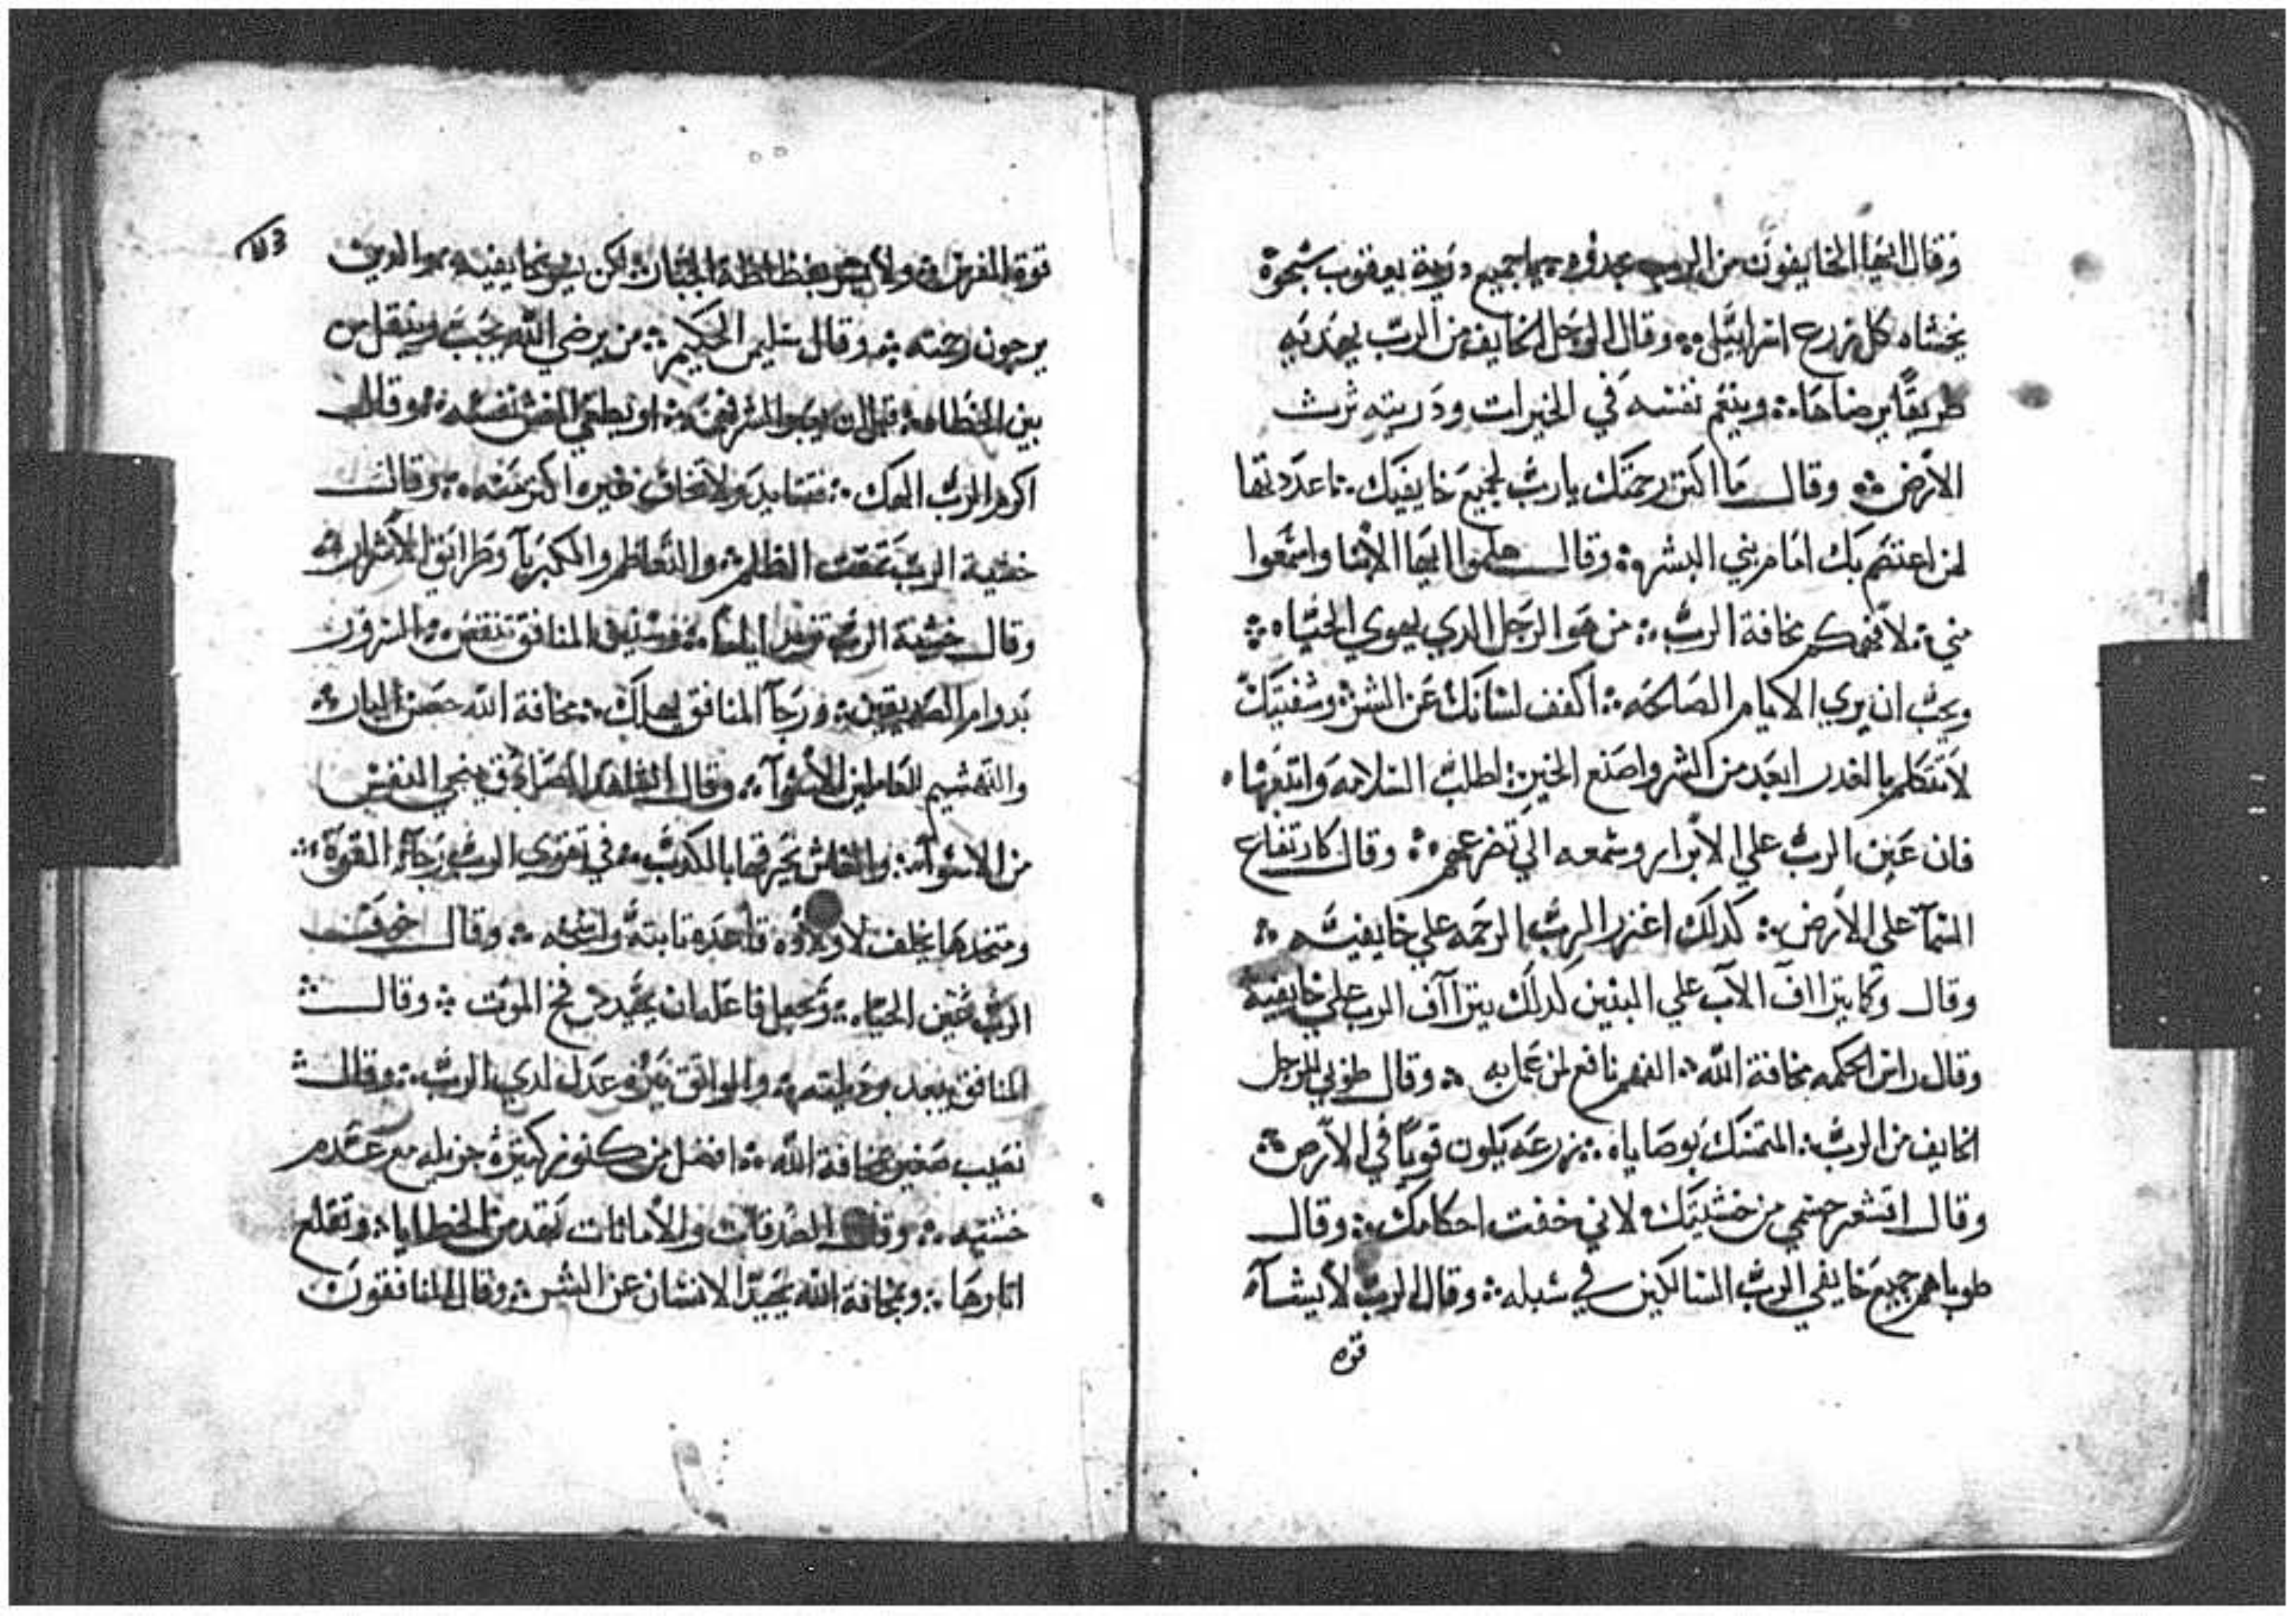 وقال ايها الخايفون من الرب مجدوه يا جميع درية يعقوب سبحوه
يخشاه كل زرع اسراييل وقال الرجل الخايف من الرب يهديه
طريقًا يرضاها وينيم نفسه في الخيرات ودريته ترث
الأرض وقال ما اكثر رحمتك يارب لجميع خايفيك اعددتها
لمن اعتصم بك امام بني البشر وقال هلموا ايها الابنا واسمعوا
مني لأفهمكم مخافة الرب من هو الرجل الدي يهوي الحياه
ويحب ان يري الايام الصالحه اكفف لسانك عن الشر وشفتيك
لا تتكلم بالغدر ابعد من الشر واصنع الخير اطلب السلامه واتبعها
فان عين الرب علي الأبرار وسمعه الي تضرعهم وقال كارتفاع
السمآ علي الأرض كدلك اغزر الرب الرحمه علي خايفيه
وقال وكما يترااف الآب علي البنين كدلك يتراآف الرب علي خايفيه
وقال راس الحكمه مخافة الله الفهم نافع لمن عمل به وقال طوبي للرجل
الخايف من الرب المتمسك بوصاياه زرعه يكون قويًا في الأرض
وقال اقشعر جسمي من خشيتك لاني خفت احكامك وقال
طوباهم جميع خايفي الرب السالكين في سبله وقال الرب لا يشآ
قوة
قوة الفرس ولا يسر لكن يسر بخايفيه والدين
يرجون رحمته وقال سليمن الحكيم من يرضي الله يحب وينتقل من
بين الخطاه قبل ان او يطغي الغش نفسه وقال
اكرم الرب الهك ولا تخاف غيره اكثر منه وقال
خشية الرب تمقت الظلم والتعاظم والكبريآ وطرايق الأشرار
وقال خشية الرب تزيد ايامًا وسنين المنافق تنقص السرور
يدوام الصديقين ورجآ المنافق يهلك مخافة الله حصن البار
والتهشيم للعاملين الأسوآ وقال الشاهد الصادق ينجي النفس
من الاسوآ والغاش يحرقها بالكدب في تقوي الرب رجآ القوة
ومتخدها يخلف لاولاده قاعده تابته وقال خوف
الرب عين الحياه وتجعل فاعلها ان يحيد من فخ الموت وقال
المنافق يبعد عدل لدي الرب وقال
نصيب صغير بمخافة الله افضل من كنوز كثيرة جزيله مع عدم
خشيته وقال الصدقات والأمانات تقد من الخطايا وتقلع
اثارها وبمخافة الله يحيد الانسان عن الشر وقال المنافقون